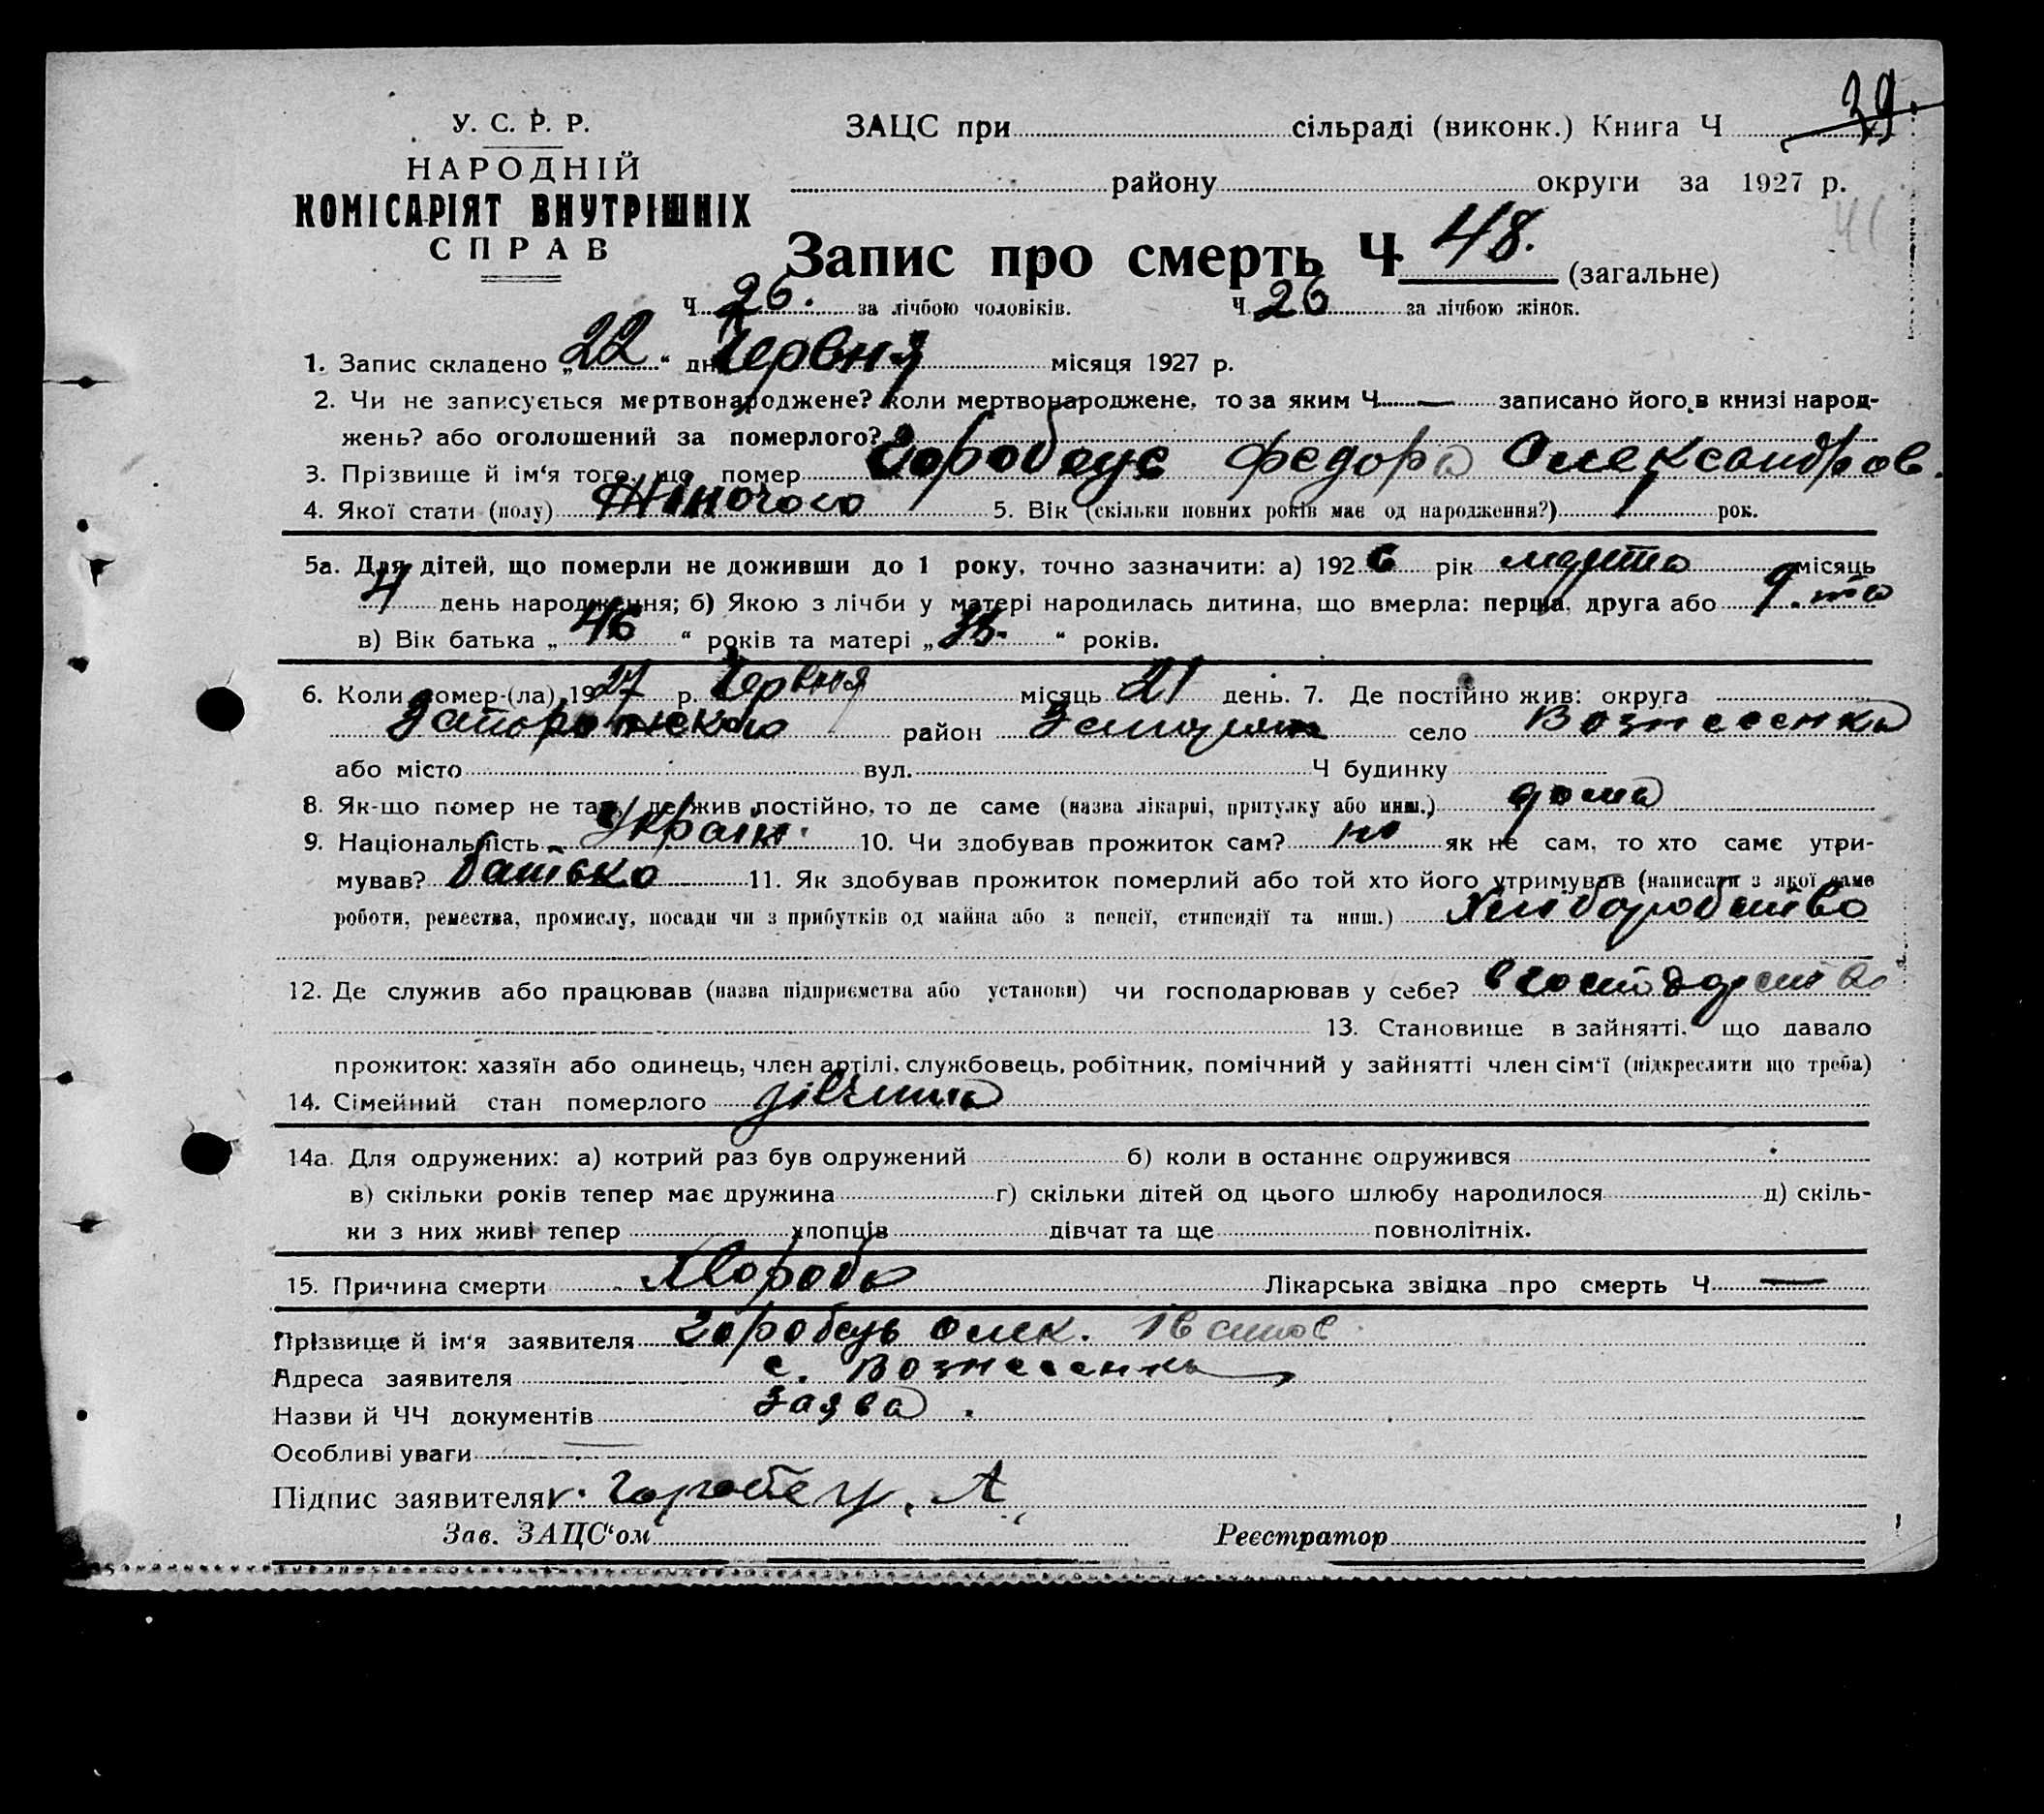 39.
У. С. Р. Р.
НАРОДНІЙ
КОМІСАРІЯТ ВНУТРІШНІХ
СПРАВ
ЗАЦС при сільраді (виконк.) Книга Ч
району округи за 1927 р.
Запис про смерть Ч 48. (загальне)
Ч 26. за лічбою чоловіків. Ч 26 за лічбою жінок.
1. Запис складено „22“ дн Червня місяця 1927 р.
2. Чи не записується мертвонароджене? Коли мертвонароджене, то за яким Ч — записано його в книзі народ-
жень? або оголошений за померлого?
3. Прізвище й ім‘я того, що помер Горобець Федора Олександров.
4. Якої стати (полу) Жіночого 5. Вік (скільки повних років має од народження?) 1 рок.
5а. Для дітей, що померли не доживши до 1 року, точно зазначити: а) 1926 рік місяць
день народження; б) Якою з лічби у матері народилась дитина, що вмерла: перша, друга або 9.та
в) Вік батька „46“ років та матері „ “ років.
6. Коли помер-(ла) 1927 р. Червня місяць 21 день. 7. Де постійно жив: округа
Запоріжського район село Вознесенка
або місто вул. Ч будинку
8. Як-що помер не там, де жив постійно, то де саме (назва лікарні, притулку або инш.) дома
9. Національність Україн. 10. Чи здобував прожиток сам? ні як не сам, то хто саме утри-
мував? батько 11. Як здобував прожиток померлий або той хто його утримував (написати з якої саме
роботи, ремества, промислу, посади чи з прибутків од майна або з пенсії, стипендії та инш.) Хліборобство
12. Де служив або працював (назва підприємства або установи) чи господарював у себе? в господарстві
13. Становище в зайнятті, що давало
прожиток: хазяїн або одинець, член артілі, службовець, робітник, помічний у зайнятті член сім‘ї (підкреслити що треба)
14. Сімейний стан померлого дівчина
14а. Для одружених: а) котрий раз був одружений б) коли в останнє одружився
в) скільки років тепер має дружина г) скільки дітей од цього шлюбу народилося д) скіль-
ки з них живі тепер хлопців дівчат та ще повнолітніх.
15. Причина смерти Хвороба Лікарська звідка про смерть Ч —
Прізвище й ім‘я заявителя Горобець Олек.
Адреса заявителя с. Вознесенка
Назви й ЧЧ документів Заява.
Особливі уваги —
Підпис заявителя Горобец, А
Зав. ЗАЦС‘ом Реєстратор